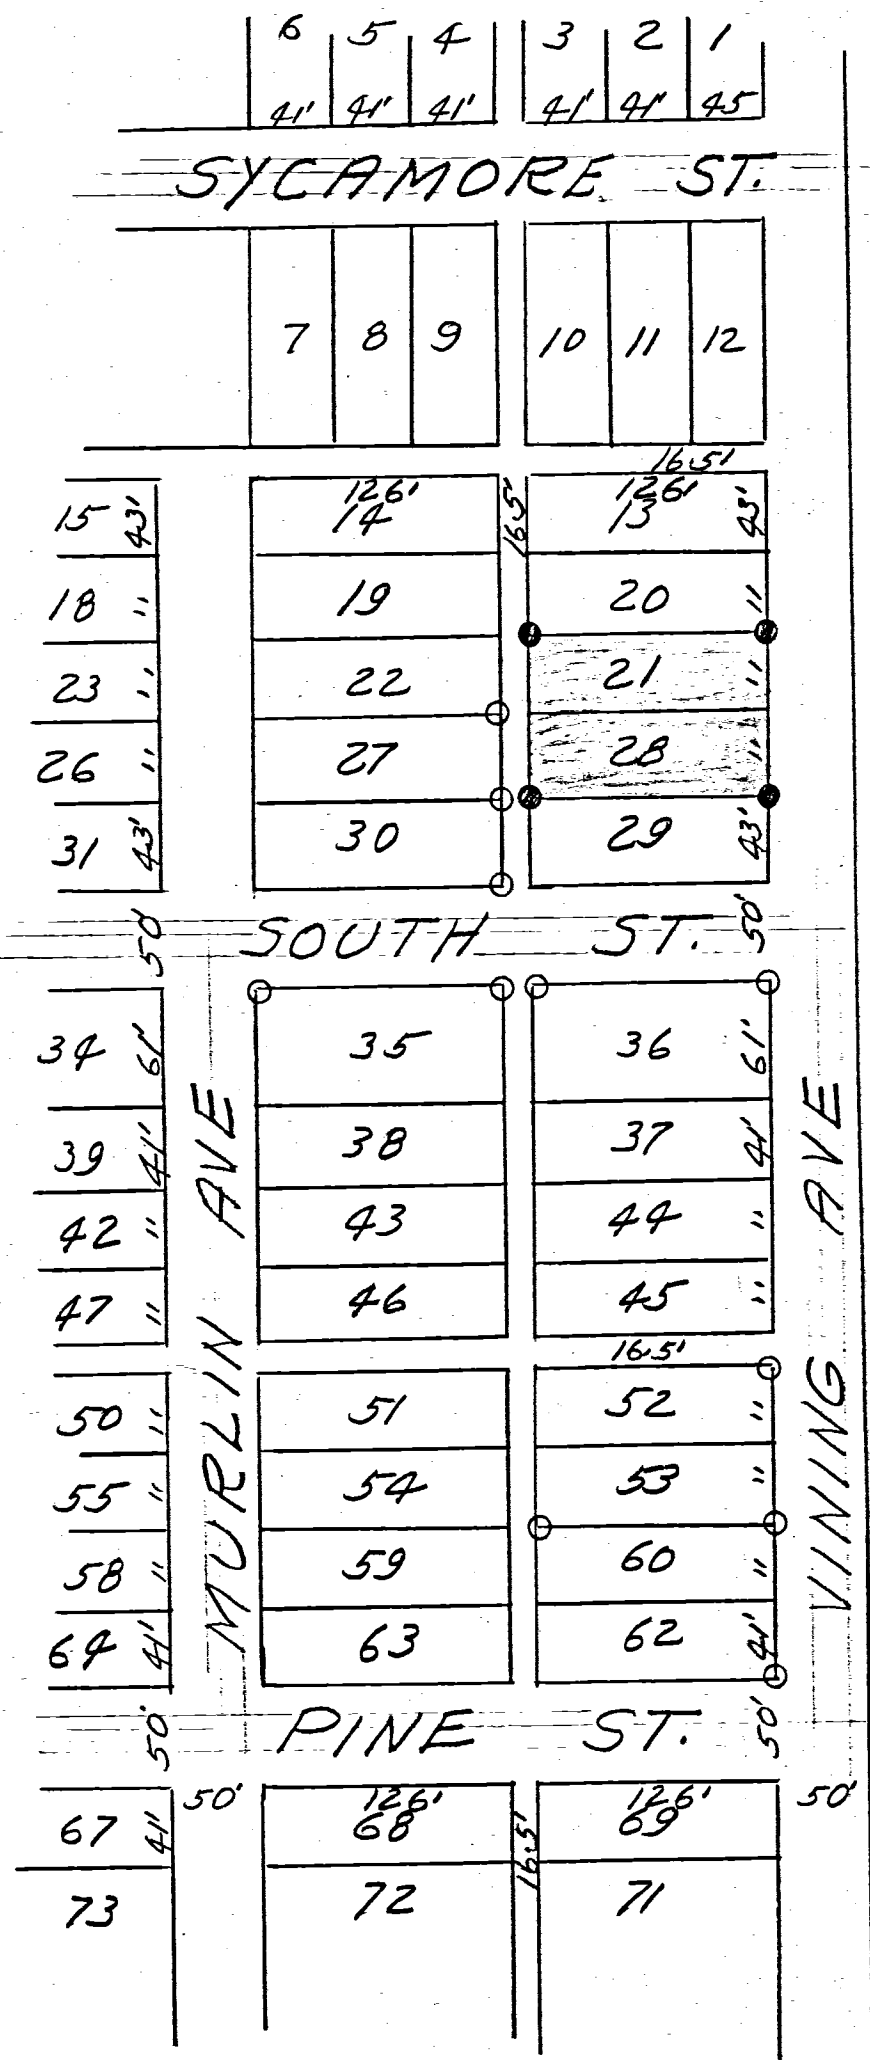 6 5 4 3 2 1
41' 41' 41' 41' 41' 45
SYCAMORE ST.
7 8 9 10 11 12
16.5'
126' 126'
15 43' 14 16.5' 13 43'
18 " 19 20 "
23 " 22 21 "
26 " 27 28 "
31 43' 30 29 43'
50' SOUTH ST. 50'
34 61' 35 36 61'
39 41' 38 37 41'
42 " 43 44 "
47 " 46 45 "
16.5'
50 " 51 52 "
55 " 54 53 "
58 " 59 60 "
64 41' 63 62 41'
MURLIN AVE
VINING AVE
50' PINE ST. 50'
50' 126' 126' 50'
67 41' 68 16.5' 69
73 72 71